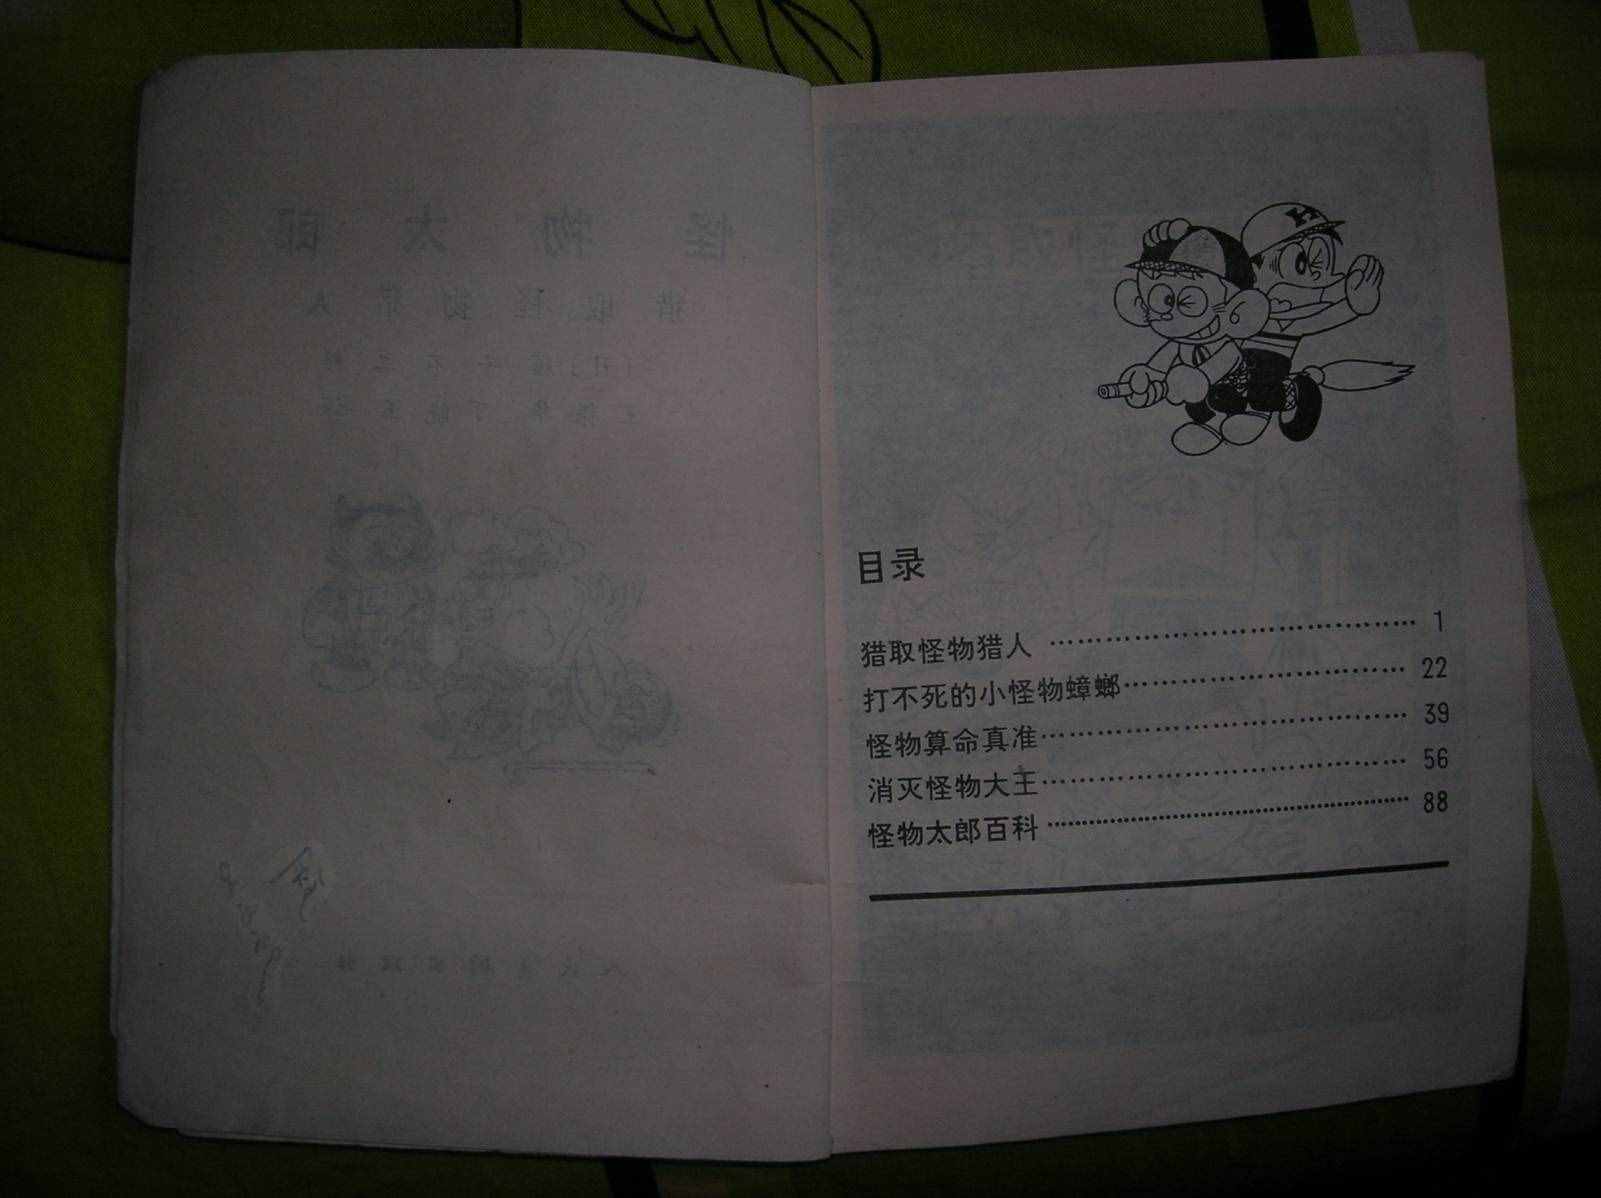 怪物太郎
猎取怪物猎人
H
目录
猎取怪物猎人 …… 1
打不死的小怪物蟑螂 …… 22
怪物算命真准 …… 39
消灭怪物大王 …… 56
怪物太郎百科 …… 88